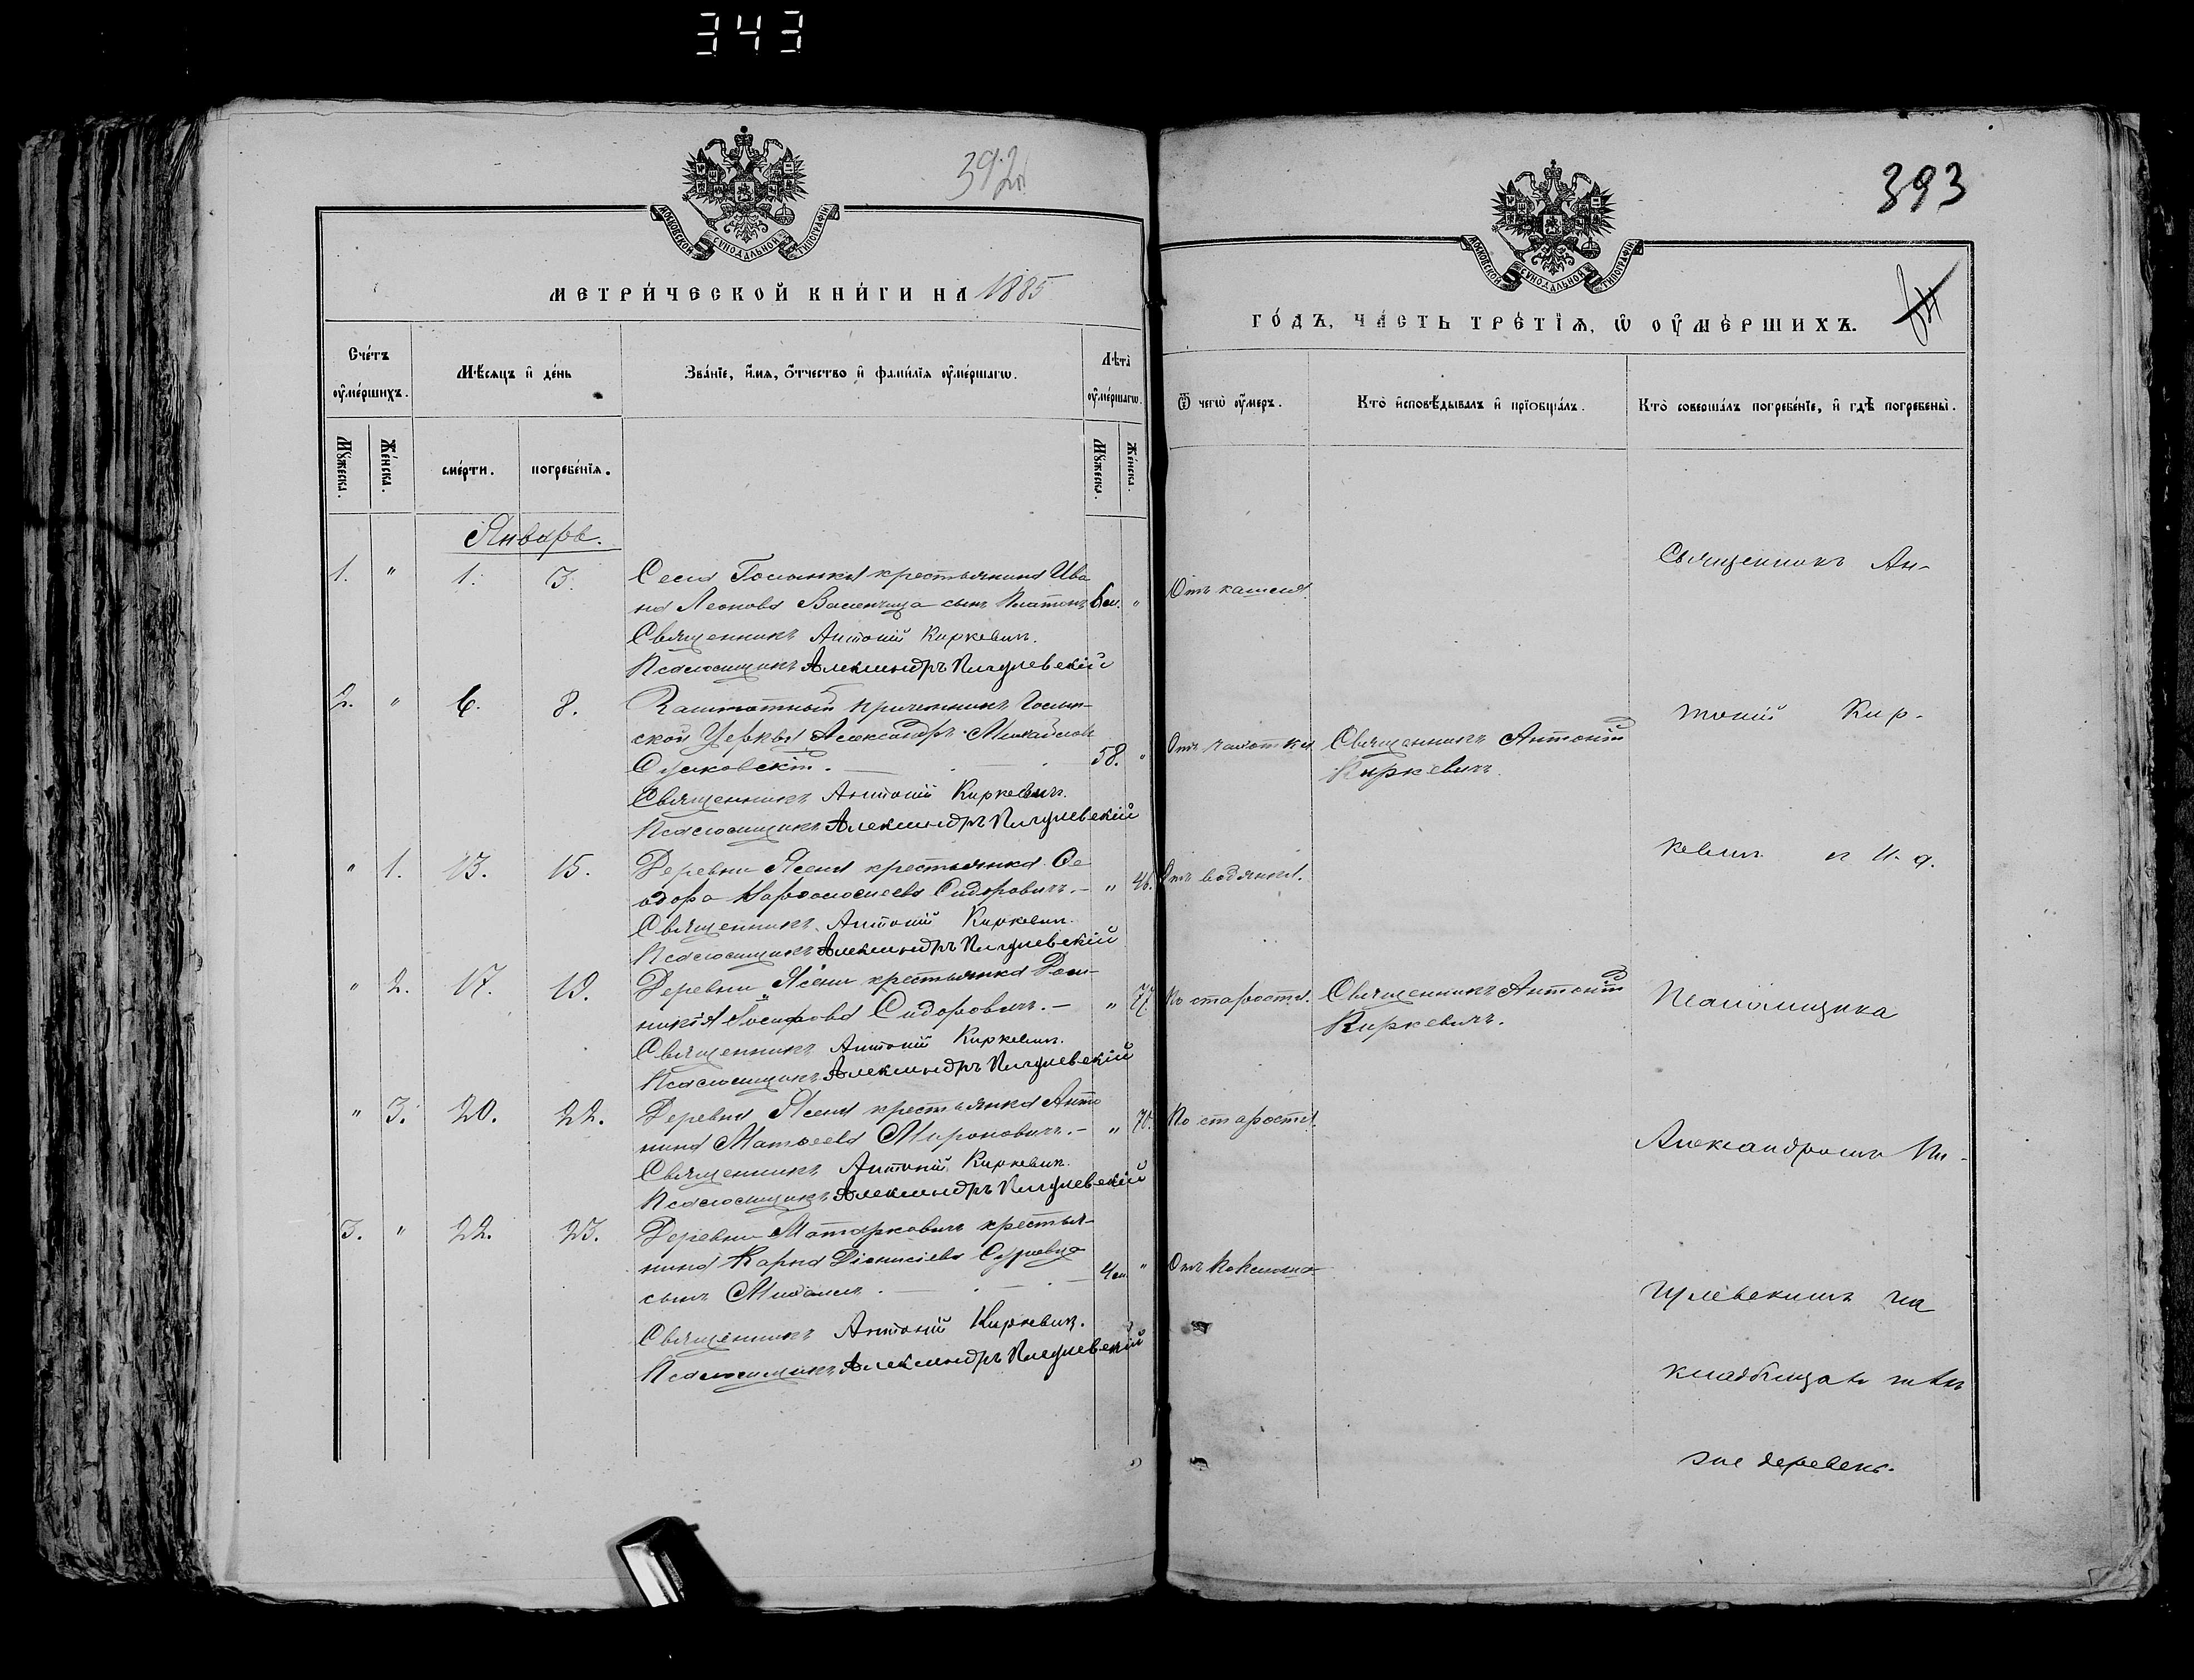 343
392
МОСКОВСКОЙ СѴНОДАЛЬНОЙ ТИПОГРАФІИ
МЕТРИ́ЧЕСКОЙ КНИ́ГИ НА 1885
Сче́тъ оу҆ме́ршихъ.
Мѣ́сяцъ и҆ де́нь
Зва́нїе, и҆́мя, ѻ҆́тчество и҆ фами́лїя оу҆ме́ршагѡ.
Лѣта̀ оу҆ме́ршагѡ.
Мꙋ́жеска.
Же́нска.
сме́рти.
погребе́нїя.
Мꙋ́жеска.
Же́нска.
Январь.
1. " 1. 3. Села крестьянина Ива
на Леонова сынъ Платонъ 6 м. "
Священникъ Антоній Киркевичъ.
Псаломщикъ Александръ Пигулевскій
2. " 6. 8. Заштатный причетникъ
ской Церкви Александръ Михайловъ
58. "
Священникъ Антоній Киркевичъ.
Псаломщикъ Александръ Пигулевскій
" 1. 13. 15. Деревни Ясени крестьянка Ѳе
одора Варѳоломеева Сидоровичъ. — " 46.
Священникъ Антоній Киркевичъ.
Псаломщикъ Александръ Пигулевскій
" 2. 17. 19. Деревни Ясени крестьянка Дом-
никія Іосифова Сидоровичъ. — " 77.
Священникъ Антоній Киркевичъ.
Псаломщикъ Александръ Пигулевскій
" 3. 20. 22. Деревни Ясени крестьянка Анто
нина Матѳеева Мироновичъ. — " 70.
Священникъ Антоній Киркевичъ.
Псаломщикъ Александръ Пигулевскій
3. " 22. 23. Деревни крестья-
нина Карпа Діонисіева
сынъ Михаилъ. 4 м. "
Священникъ Антоній Киркевич.
Псаломщикъ Александръ Пигулевскій
393
МОСКОВСКОЙ СѴНОДАЛЬНОЙ ТИПОГРАФІИ
ГО́ДЪ, ЧА́СТЬ ТРЕ́ТЇѦ, Ѡ҆ ОУ҆МЕ́РШИХЪ.
Ѿ чегѡ̀ оу҆́меръ.
Кто̀ и҆сповѣ́дывалъ и҆ прїобща́лъ.
Кто̀ соверша́лъ погребе́нїе, и҆ гдѣ̀ погребены̀.
Священникъ Ан-
Отъ кашля.
тоній Кир-
Отъ чахотки Священникъ Антоній
Киркевичъ.
кевичъ съ И. д.
Отъ водянки.
По старости. Священникъ Антоній
Киркевичъ.
Псаломщика
По старости.
Александромъ Пи-
Отъ коклюша
гулевскимъ на
кладбищахъ тѣхъ
же деревень.